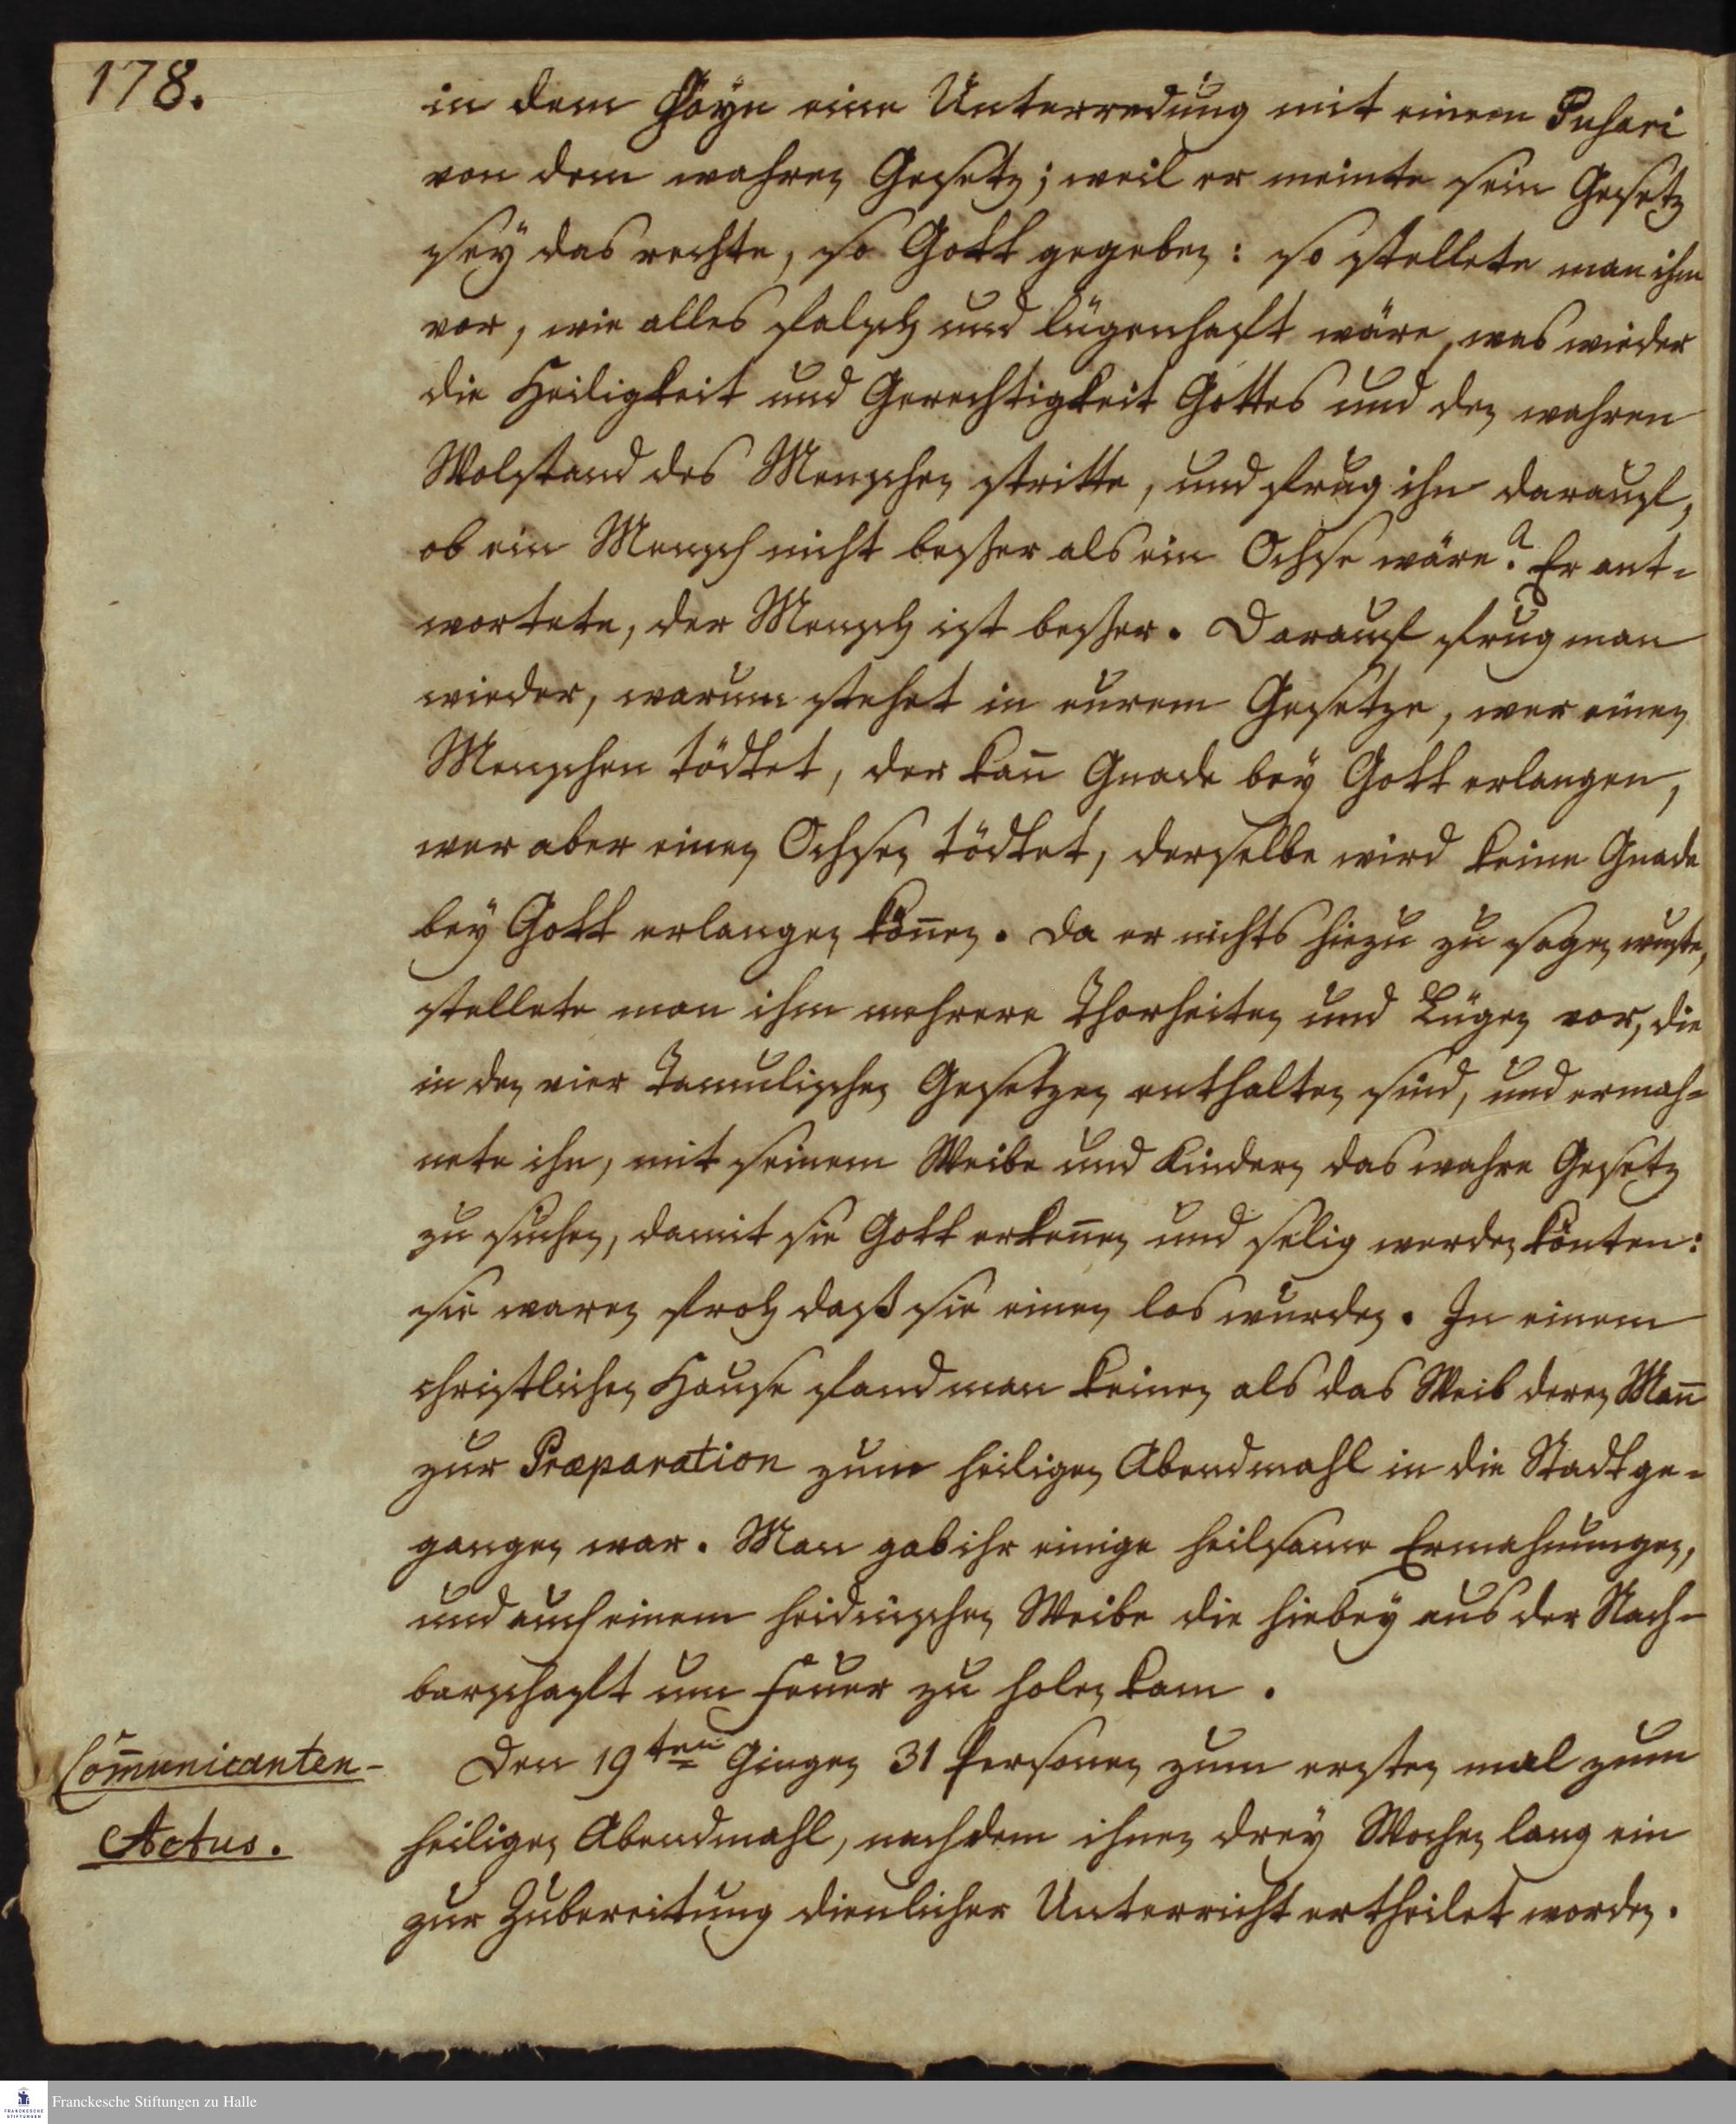 178.
in dem Hayn eine Unterredung mit einem Puhari
von dem wahren Gesetz; weil er meinte sein Gesetz
sey das rechte, so Gott gegeben: so stellete man ihm
vor, wie alles falsch und lügenhafft wäre, was wieder
die Heiligkeit und Gerechtigkeit Gottes und den wahren
Wolstand des Menschen stritte, und frug ihn darauf,
ob ein Mensch nicht beßer als ein Ochse wäre? Er ant-
wortete, der Mensch ist beßer. Darauf frug man
wieder, warum stehet in eurem Gesetze, wer einen
Menschen tödtet, der kan̄ Gnade bey Gott erlangen,
wer aber einen Ochsen tödtet, derselbe wird keine Gnade
bey Gott erlangen kön̄en. Da er nichts hiezu zu sagen wuste,
stellete man ihm mehrere Thorheiten und Lügen vor, die
in den vier Tamulischen Gesetzen enthalten sind, und ermah-
nete ihn, mit seinem Weibe und Kindern das wahre Gesetz
zu suchen, damit sie Gott erken̄en und selig werden könten:
sie waren froh daß sie einen los wurden. In einem
christlichen Hause fand man keinen als das Weib deren Man̄
zur Præparation zum heiligen Abendmahl in die Stadt ge-
gangen war. Man gab ihr einige heilsame Ermahnungen,
und auch einem heidnischen Weibe die hiebey aus der Nach-
barschafft um Feuer zu holen kam.
Com̄unicanten-
Actus.
Den 19ten Gingen 31 Personen zum ersten mal zum
heiligen Abendmahl, nachdem ihnen drey Wochen lang ein
zur Zubereitung dienlicher Unterricht ertheilet worden.
FRANCKESCHE
STIFTUNGEN
Franckesche Stiftungen zu Halle